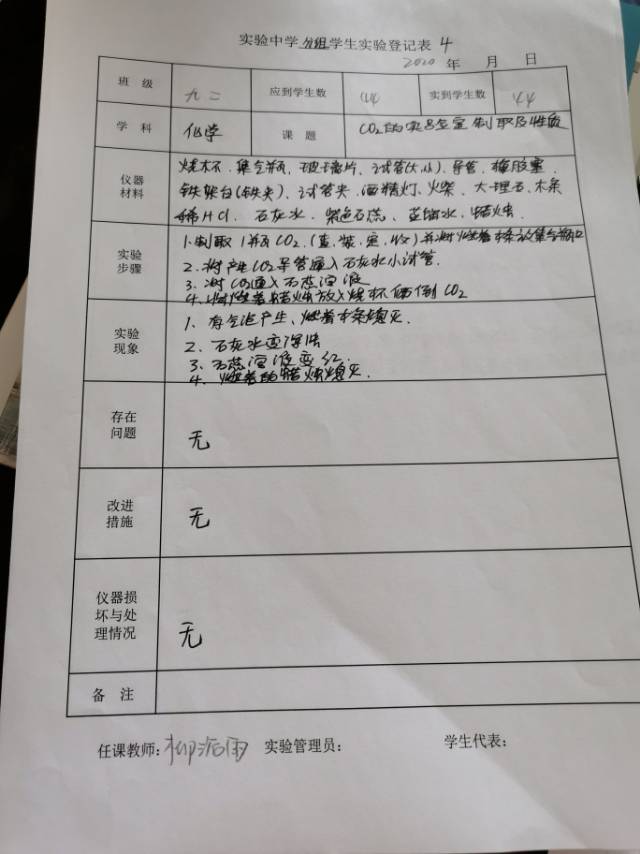 实验中学分组学生实验登记表 4
2020 年 月 日
班 级 九二 应到学生数 44 实到学生数 44
学 科 化学 课 题 CO₂的实验室制取及性质
仪器材料
烧杯、集气瓶、玻璃片、试管(大小)、导管、橡胶塞
铁架台(铁夹)、试管夹、酒精灯、火柴、大理石、木条
稀HCl、石灰水、紫色石蕊、蒸馏水、蜡烛.
实验步骤
1.制取1瓶CO₂.(查.装.定.收)并将燃着木条放集气瓶口
2.将产生CO₂导管通入石灰水小试管.
3.将CO₂通入石蕊溶液
4.将燃着蜡烛放入烧杯倾倒CO₂
实验现象
1、有气泡产生、燃着木条熄灭.
2、石灰水变浑浊
3、石蕊溶液变红.
4、燃着的蜡烛熄灭.
存在问题
无
改进措施
无
仪器损坏与处理情况
无
备 注
任课教师: 实验管理员: 学生代表: